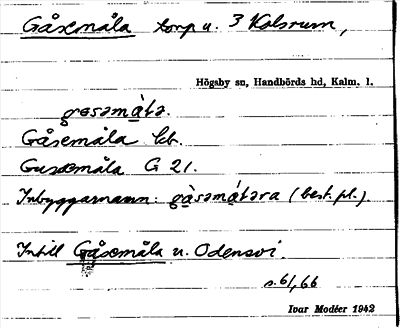 Gåsemåla torp u. 3 Kolsrum,
Högsby sn, Handbörds hd, Kalm. l.
Gåsemåla kb.
Gusemåla G 21.
Inbyggarnamn: (best. pl.).
Intill Gåsemåla u. Odensvi.
s. 61, 66
Ivar Modéer 1942